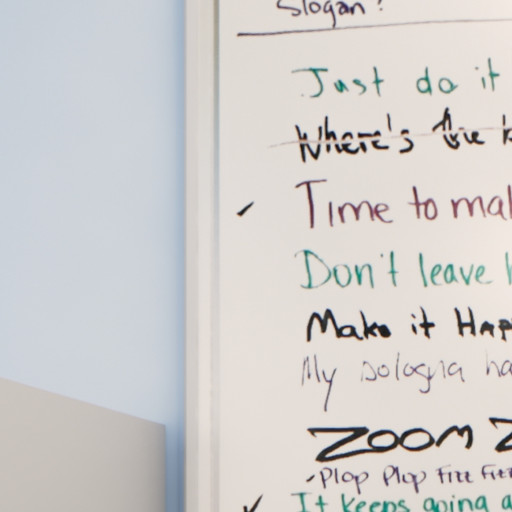 Slogan?
Just do it
Where's the
Time to mak
Don't leave
Make it Hap
My bologna ha
ZOOM Z
-Plop Plop Fizz Fizz
It keeps going a